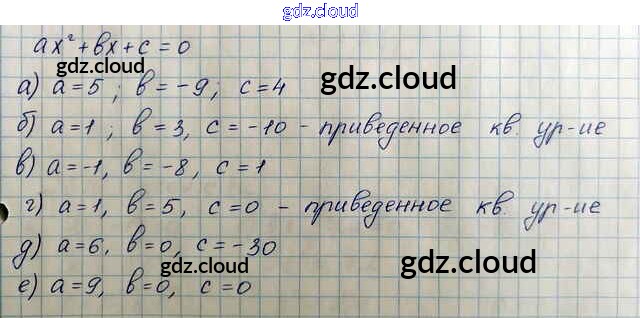 gdz.cloud
ax²+bx+c=0
gdz.cloud
а) a=5; b=-9; c=4
gdz.cloud
б) a=1; b=3, c=-10 - приведенное кв. ур-ие
в) a=-1, b=-8, c=1
г) a=1, b=5, c=0 - приведенное кв. ур-ие
д) a=6, b=0, c=-30
gdz.cloud
gdz.cloud
е) a=9, b=0, c=0